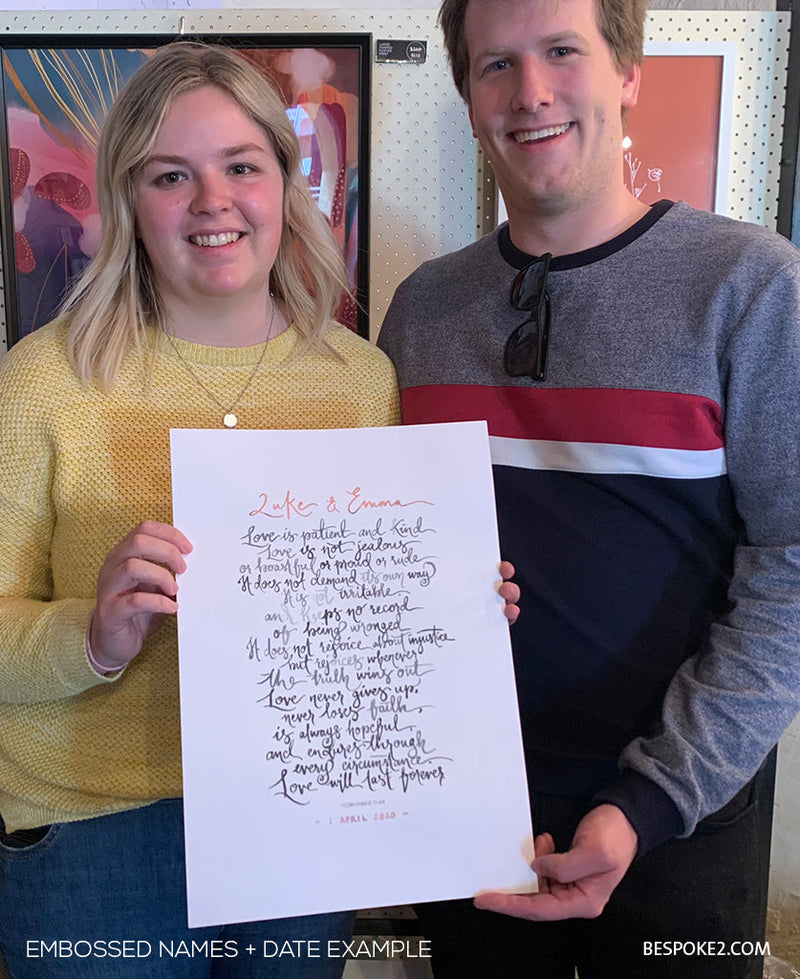 Luke & Emma
Love is patient and kind
Love is not jealous
or boastful or proud or rude
It does not demand its own way
It is not irritable
and keeps no record
of being wronged
It does not rejoice about injustice
but rejoices whenever
the truth wins out
Love never gives up,
never loses faith,
is always hopeful
and endures through
every circumstance
Love will last forever
- 1 APRIL 2020 -
EMBOSSED NAMES + DATE EXAMPLE
BESPOKE2.COM